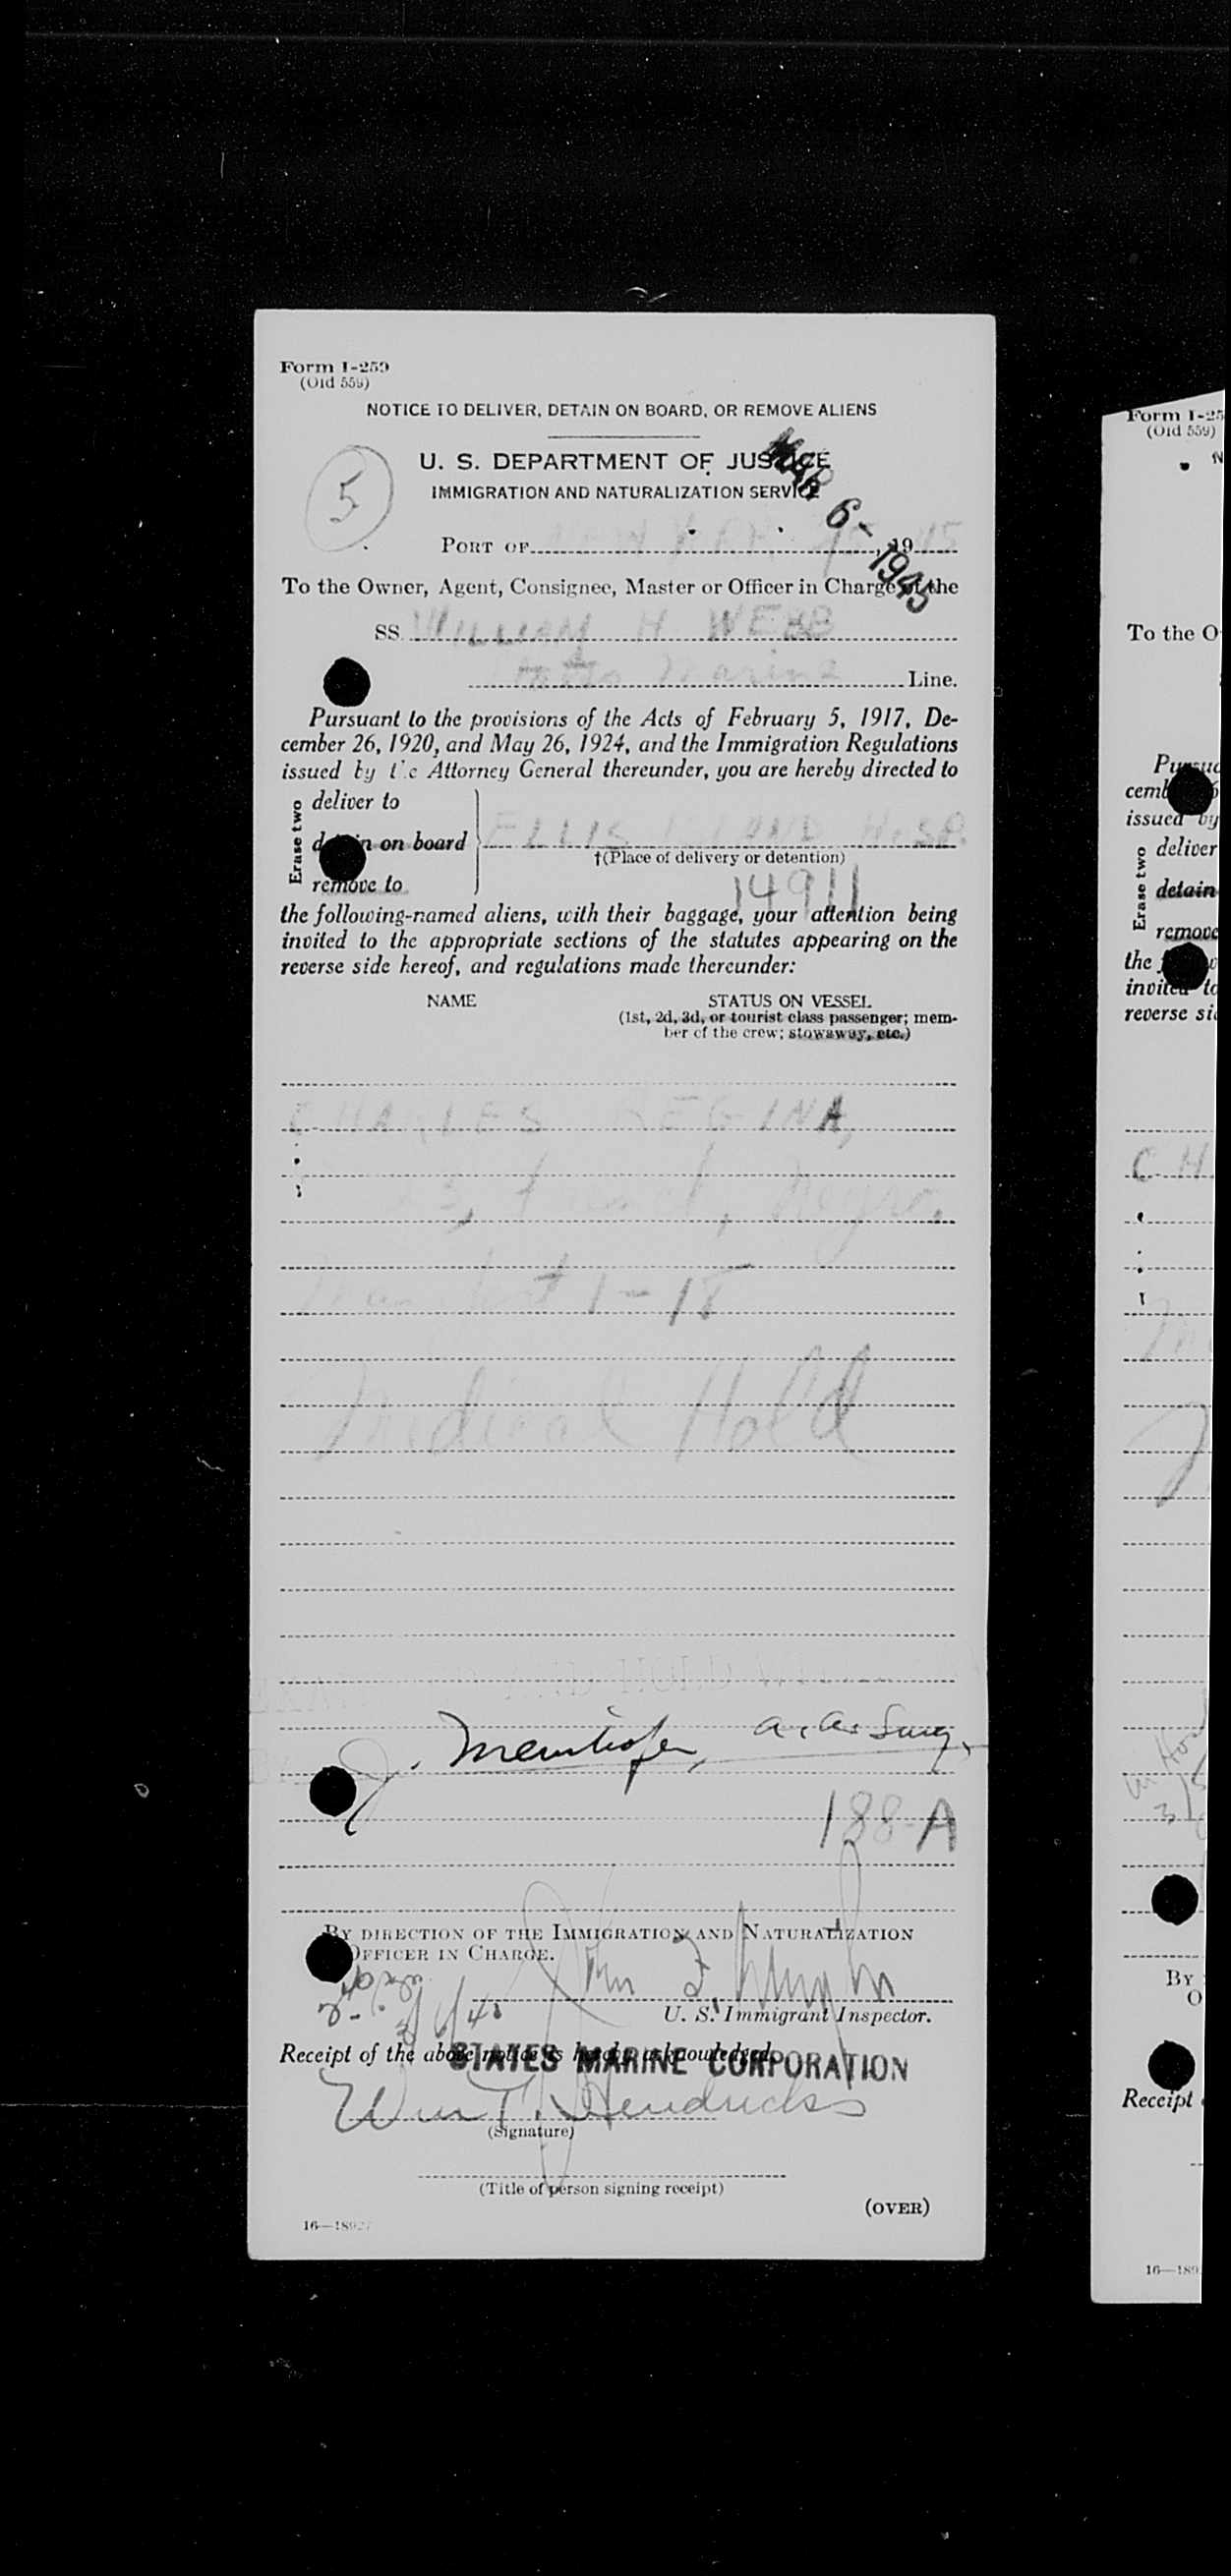 Form I-259
(Old 559)
NOTICE TO DELIVER, DETAIN ON BOARD, OR REMOVE ALIENS
U. S. DEPARTMENT OF JUSTICE
IMMIGRATION AND NATURALIZATION SERVICE
5
MAR 6- 1945
PORT OF , 1945
To the Owner, Agent, Consignee, Master or Officer in Charge of the
SS. WILLIAM H WEBB
Marine Line.
Pursuant to the provisions of the Acts of February 5, 1917, De-
cember 26, 1920, and May 26, 1924, and the Immigration Regulations
issued by the Attorney General thereunder, you are hereby directed to
Erase two
deliver to
detain on board
remove to
ELLIS ISLAND HOSP.
†(Place of delivery or detention)
14911
the following-named aliens, with their baggage, your attention being
invited to the appropriate sections of the statutes appearing on the
reverse side hereof, and regulations made thereunder:
NAME STATUS ON VESSEL
(1st, 2d, 3d, or tourist class passenger; mem-
ber of the crew; stowaway, etc.)
CHARLES REGINA,
Negro.
1-18
Medical Hold
J. a. a. Surg.
188-A
BY DIRECTION OF THE IMMIGRATION AND NATURALIZATION
OFFICER IN CHARGE.
John F.
3/6/45
U. S. Immigrant Inspector.
Receipt of the above notice is hereby acknowledged.
STATES MARINE CORPORATION
Wm T. Hendricks
(Signature)
(Title of person signing receipt)
(OVER)
Form I-25
(Old 559)
N
To the O
Pursua
cemb
issued by
Erase two
deliver
detain
remove
the
invited to
reverse si
CH
BY
O
Receipt